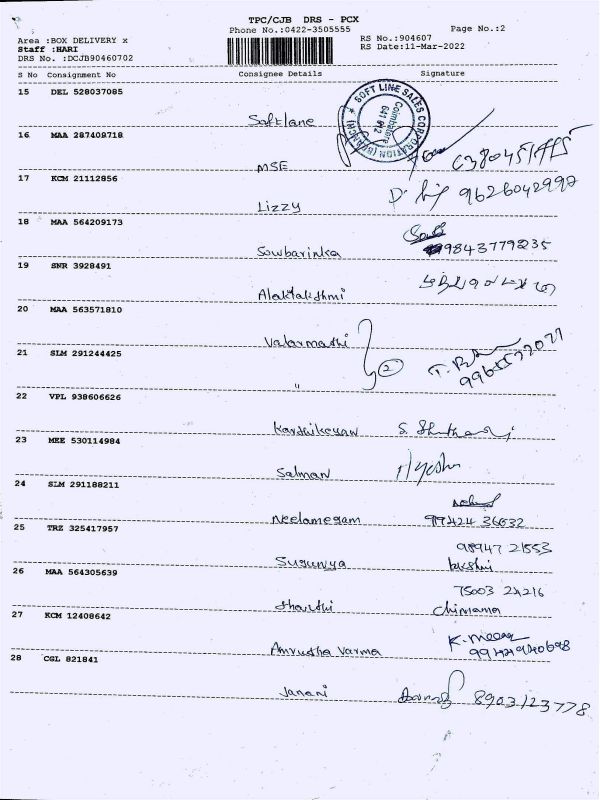 TPC/CJB DRS - PCX
Phone No.:0422-3505555 Page No.:2
Area :BOX DELIVERY x RS No.:904607
Staff :HARI RS Date:11-Mar-2022
DRS No. :DCJB90460702
S No Consignment No Consignee Details Signature
15 DEL 528037085
Softlane
SOFT LINE SALES CORPORATION (BRANCH)
Coimbatore
641 012
16 MAA 287409718
MSE
17 KCM 21112856
Lizzy 9626042992
18 MAA 564209173
Sowbarinka 9843779235
19 SNR 3928491
Alaktalshmi
20 MAA 563571810
Valarmathi
2
21 SLM 291244425
"
22 VPL 938606626
Karthikeyan
23 MKE 530114984
Salman
24 SLM 291188211
Neelamegam 36032
25 TRZ 325417957
98947 21553
Sugunya
26 MAA 564305639
75003 24216
Sharthi Chinnama
27 KCM 12408642
K. Meena
Amrutha Varma
28 CGL 821841
Janani 8903123778